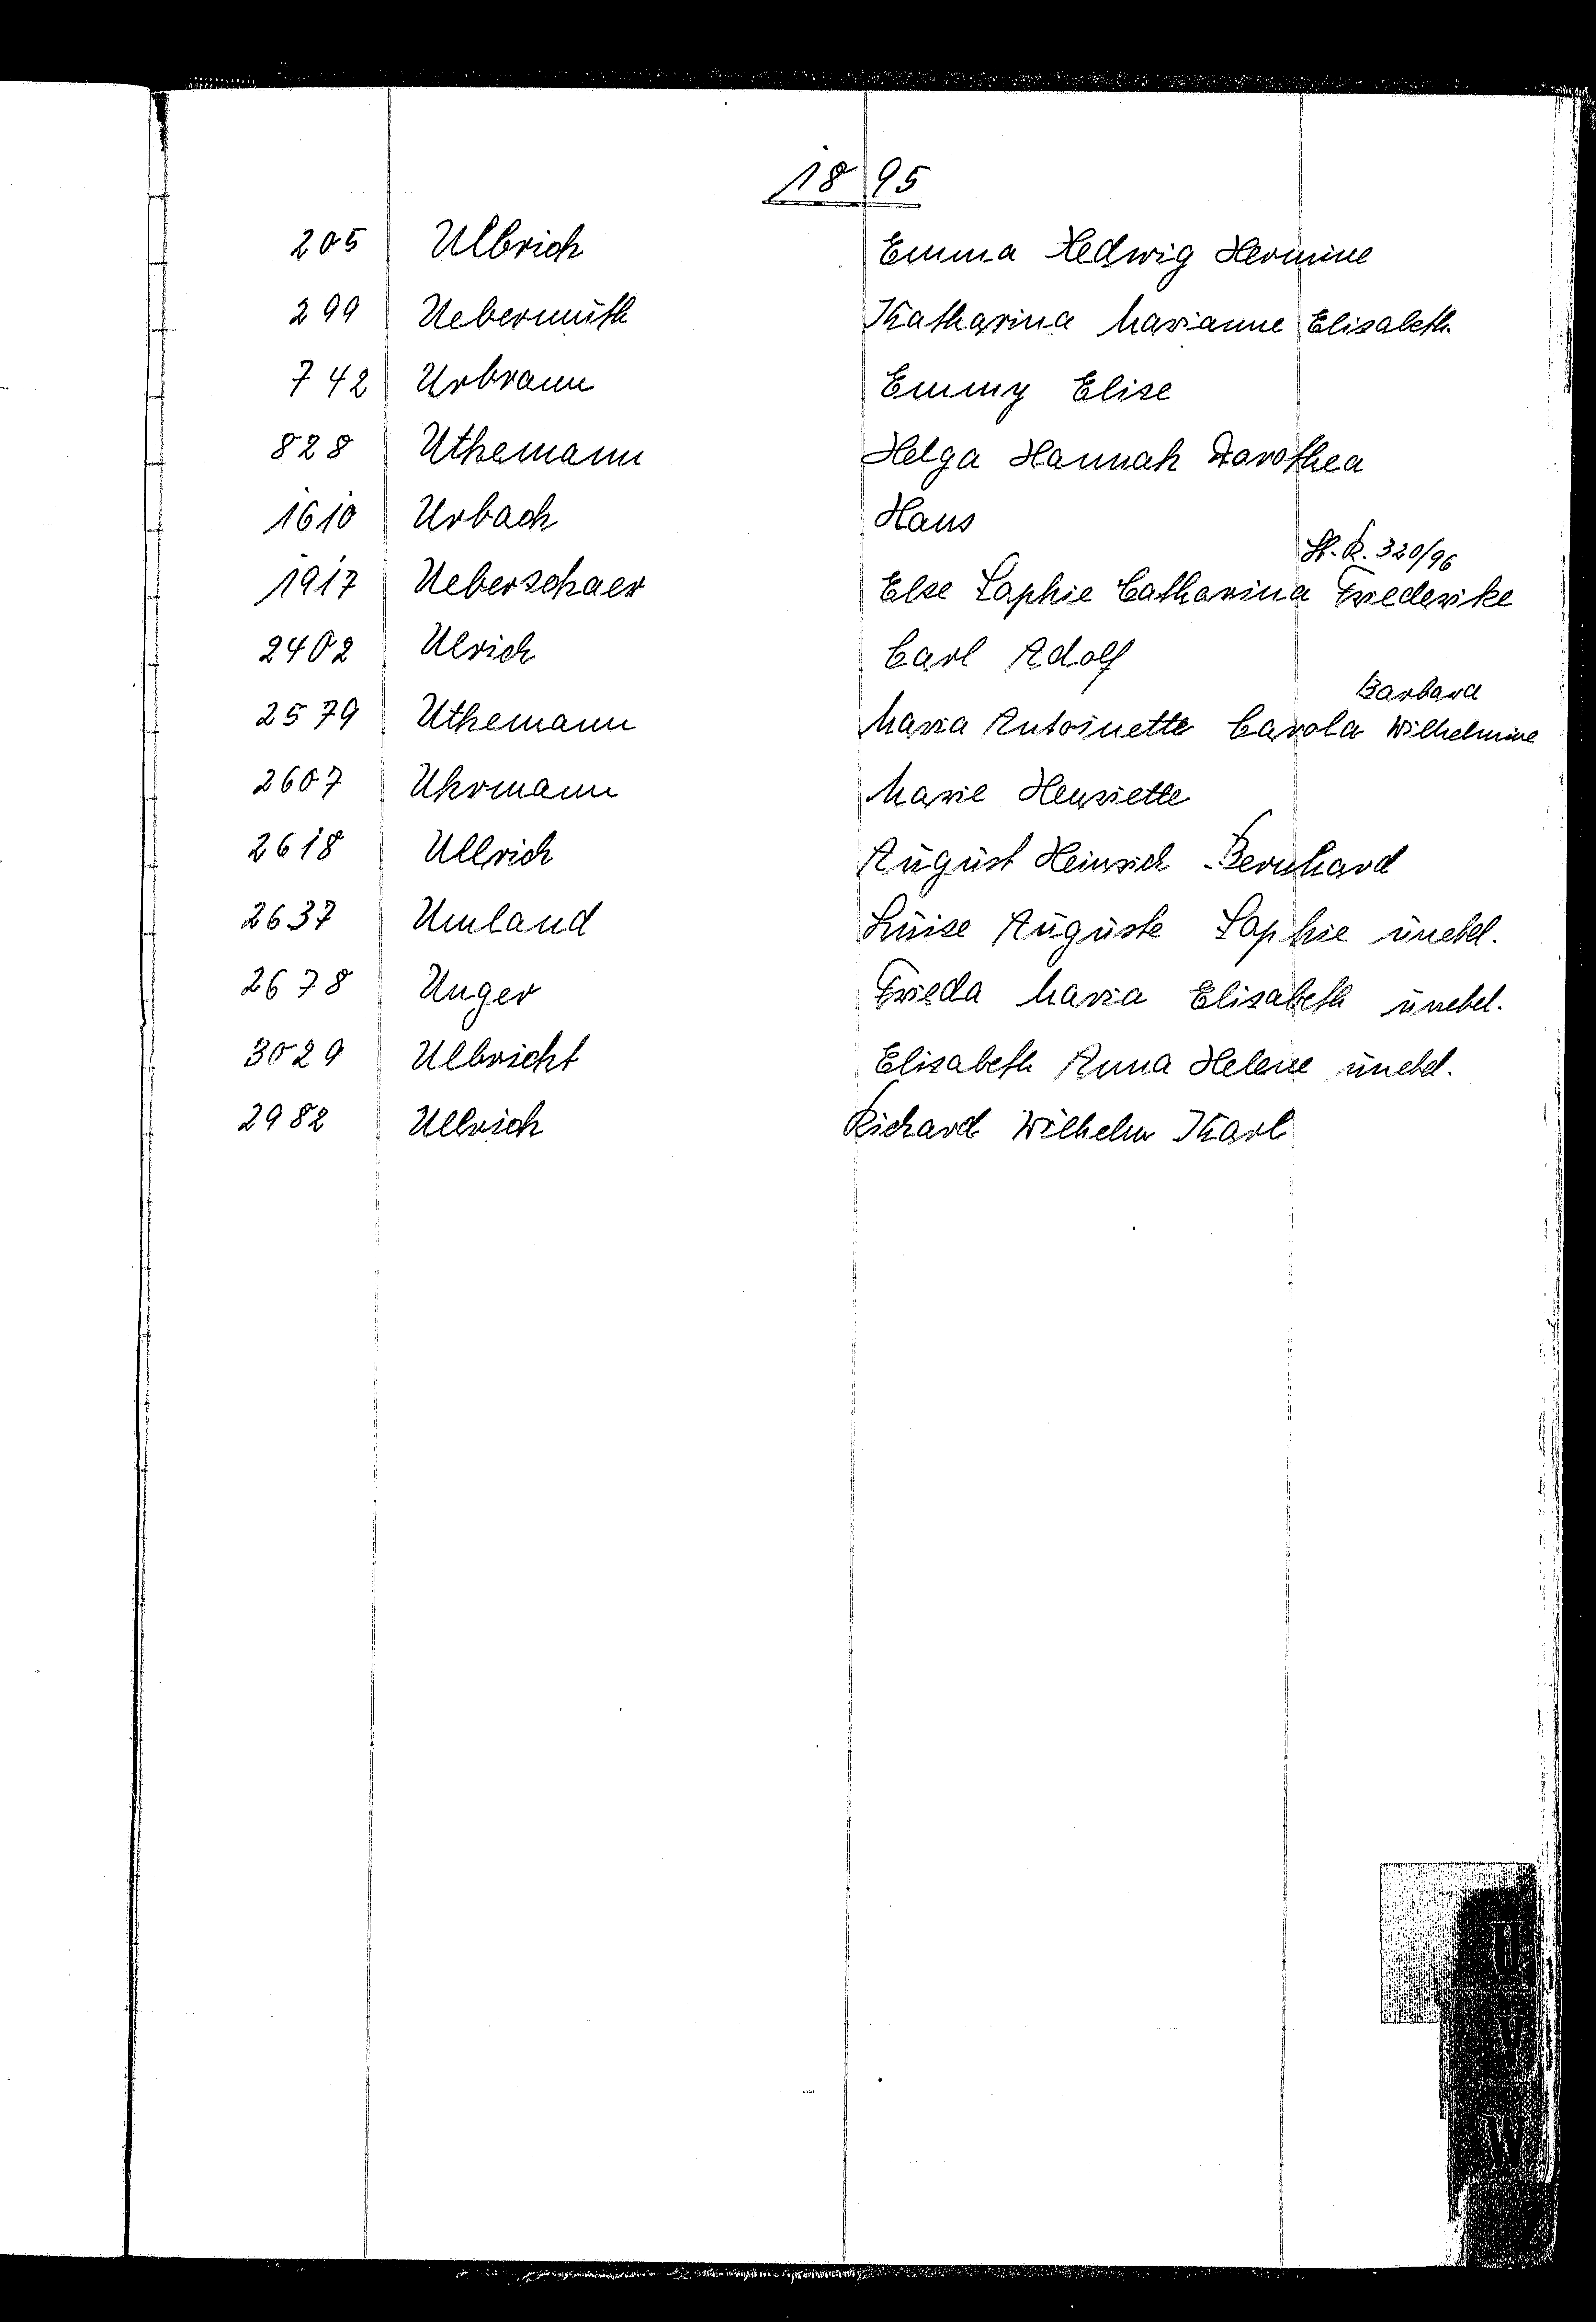 1895
205 Ulbrich Emma Hedwig Hermine
299 Uebermuth Katharina Marianne Elisabeth
742 Urbrann Emmy Elise
828 Uthemann Helga Hannah Dorothea
1610 Urbach Hans
St. R. 320/96
1917 Ueberschaer Else Sophie Catharina Friederike
2402 Ulrich Carl Adolf
Barbara
2579 Uthemann Maria Antoinette Carola Wilhelmine
2607 Uhrmann Marie Henriette
2618 Ullrich August Heinrich Bernhard
2637 Umland Luise Auguste Sophie unehel.
2678 Unger Frieda Maria Elisabeth unehel.
3029 Ulbricht Elisabeth Anna Helene unehel.
2982 Ullrich Richard Wilhelm Karl
U
V
W